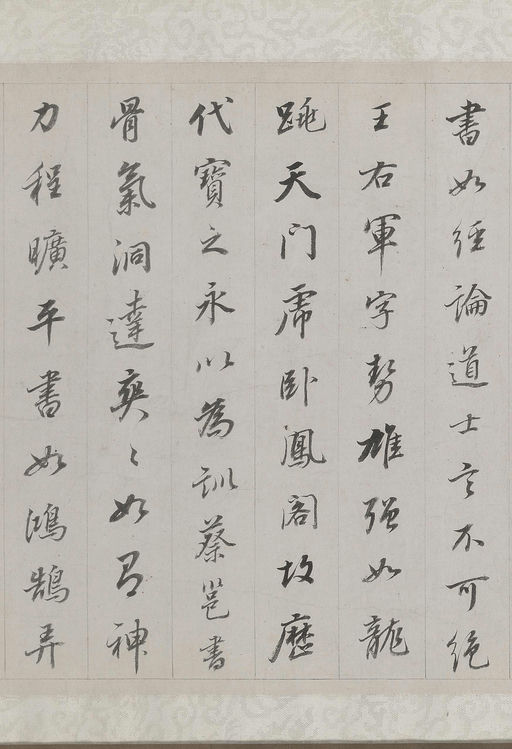 書如經論道士言不可絕
王右軍字勢雄强如龍
跳天門虎卧鳳閣故歷
代寶之永以為訓蔡邕書
骨氣洞達爽〻如有神
力程曠平書如鴻鵠弄